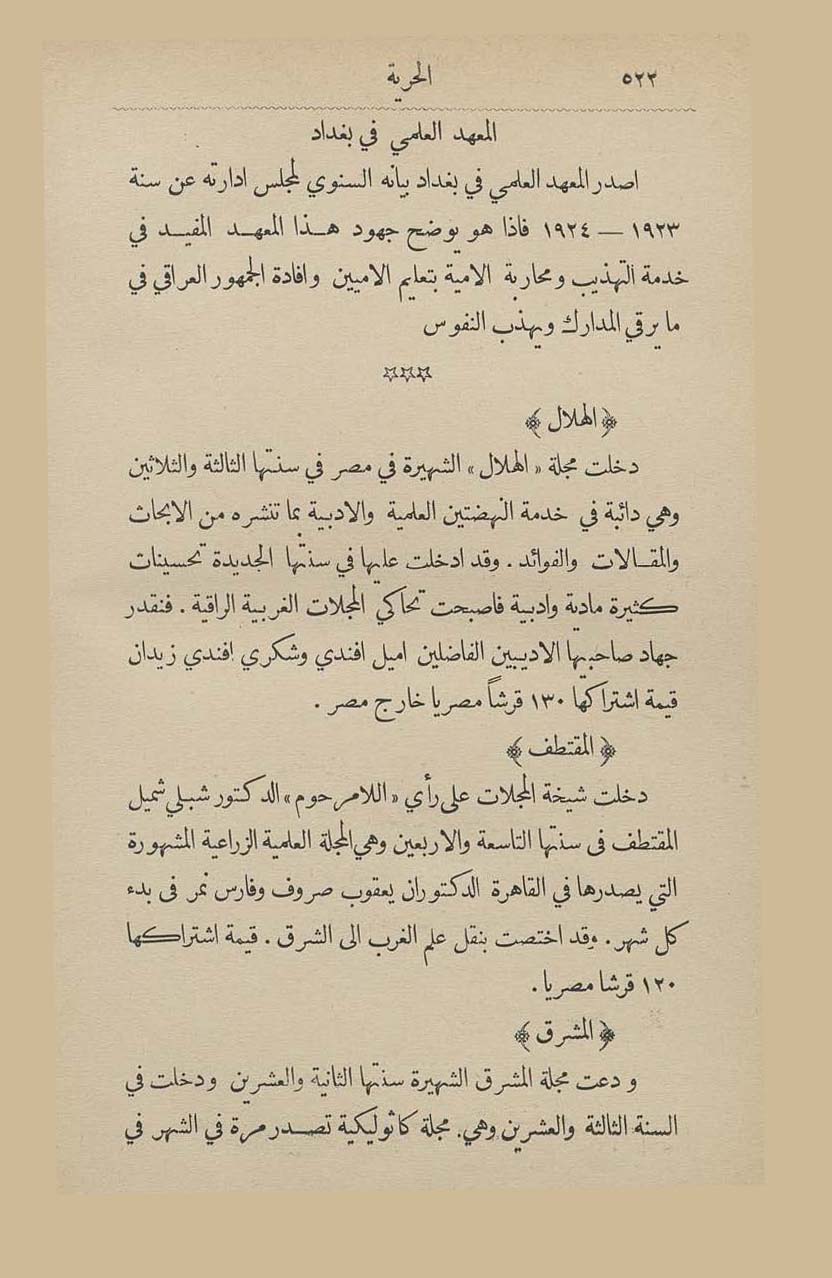 ٥٢٢ الحرية
المعهد العلمي في بغداد
اصدر المعهد العلمي في بغداد بيانه السنوي لمجلس ادارته عن سنة
١٩٢٣ — ١٩٢٤ فاذا هو يوضح جهود هـذا المعهد المفيد في
خدمة التهذيب ومحاربة الامية بتعليم الاميين وافادة الجمهور العراقي في
ما يرقي المدارك ويهذب النفوس
﴿ الهلال ﴾
دخلت مجلة « الهلال » الشهيرة في مصر في سنتها الثالثة والثلاثين
وهي دائبة في خدمة النهضتين العلمية والادبية بما تنشره من الابحاث
والمقـالات والفوائد . وقد ادخلت عليها في سنتها الجديدة تحسينات
كثيرة مادية وادبية فاصبحت تحاكي المجلات الغربية الراقية . فنقدر
جهاد صاحبيها الاديبين الفاضلين اميل افندي وشكري افندي زيدان
قيمة اشتراكها ١٣٠ قرشاً مصريا خارج مصر .
﴿ المقتطف ﴾
دخلت شيخة المجلات على رأي « اللامرحوم » الدكتور شبلي شميل
المقتطف في سنتها التاسعة والاربعين وهي المجلة العلمية الزراعية المشهورة
التي يصدرها في القاهرة الدكتوران يعقوب صروف وفارس نمر في بدء
كل شهر . وقد اختصت بنقل علم الغرب الى الشرق . قيمة اشتراكها
١٢٠ قرشا مصريا .
﴿ المشرق ﴾
ودعت مجلة المشرق الشهيرة سنتها الثانية والعشرين ودخلت في
السنة الثالثة والعشرين وهي مجلة كاثوليكية تصـدر مرة في الشهر في